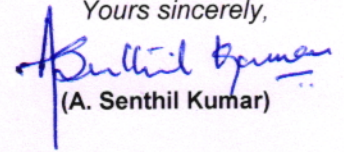 Yours sincerely,
A Senthil Kumar
(A. Senthil Kumar)